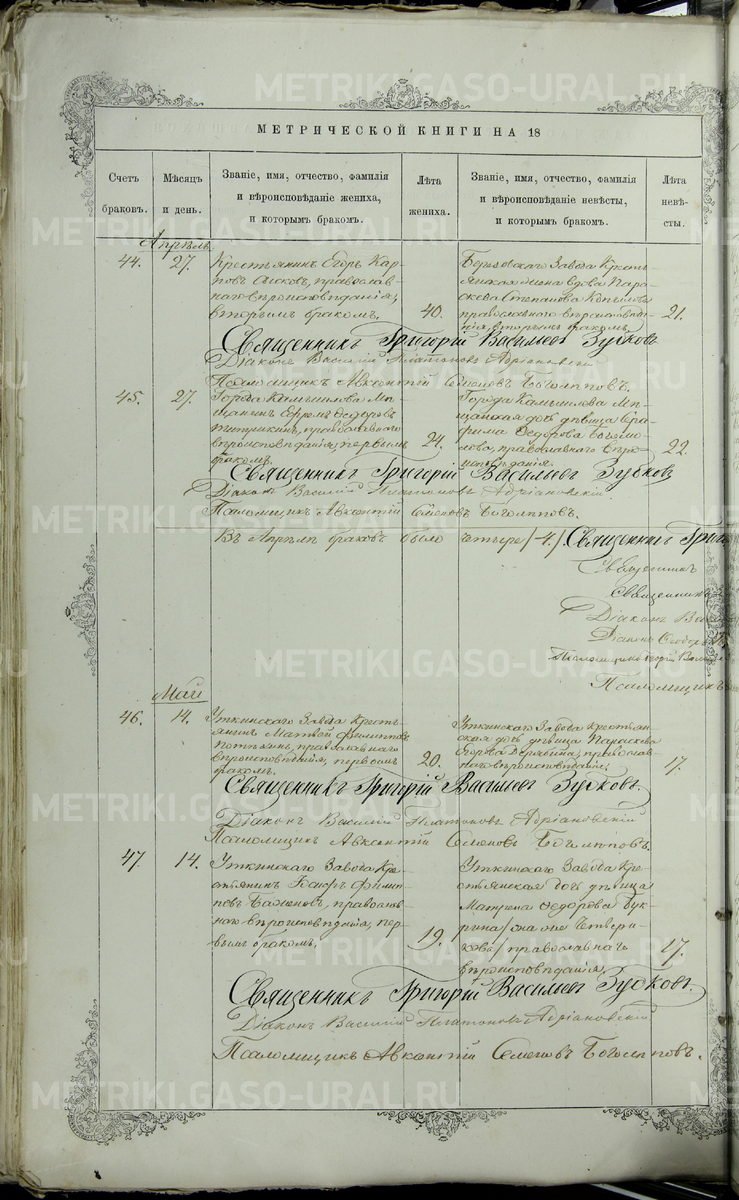 МЕТРИЧЕСКОЙ КНИГИ НА 18
Счетъ браковъ.
Мѣсяцъ и день.
Званіе, имя, отчество, фамилія
и вѣроисповѣданіе жениха,
и которымъ бракомъ.
Лѣта жениха.
Званіе, имя, отчество, фамилія
и вѣроисповѣданіе невѣсты,
и которымъ бракомъ.
Лѣта невѣ-
сты.
Апрѣль
44.
27.
Крестьянинъ Егоръ Кар-
повъ православ-
наго вѣроисповѣданія,
вторымъ бракомъ.
40.
Завода кресть-
янская вдова Пара-
скева Степанова
православнаго вѣроисповѣда-
нія, вторымъ бракомъ.
21.
Священникъ Григорій Васильевъ Зубковъ
Діаконъ Василій Платоновъ Адріановскій
Псаломщикъ Авксентій Семеновъ Боголѣповъ.
45.
27.
Города Камышлова мѣ-
щанинъ Ефремъ Ѳедоровъ
православнаго
вѣроисповѣданія, первымъ
бракомъ.
24.
Города Камышлова мѣ-
щанская дочь дѣвица Сера-
фима Ѳедорова
православнаго вѣро-
исповѣданія.
22.
Священникъ Григорій Васильевъ Зубковъ
Діаконъ Василій Платоновъ Адріановскій
Псаломщикъ Авксентій Семеновъ Боголѣповъ.
Въ Апрѣлѣ браковъ было четыре /4/. Священникъ Григ
Священникъ
Священникъ
Діаконъ Вас
Діаконъ
Псаломщикъ
Псаломщикъ
Май
46.
14.
Уткинскаго Завода кресть-
янинъ Матвей Филипповъ
православнаго
вѣроисповѣданія, первымъ
бракомъ.
20.
Уткинскаго Завода крестьян-
ская дочь дѣвица Параскева
православ-
наго вѣроисповѣданія,
17.
Священникъ Григорій Васильевъ Зубковъ.
Діаконъ Василій Платоновъ Адріановскій
Псаломщикъ Авксентій Семеновъ Боголѣповъ.
47.
14.
Уткинскаго Завода кре-
стьянинъ Іосифъ Филип-
повъ Баженовъ, православ-
наго вѣроисповѣданія, пер-
вымъ бракомъ,
19.
Уткинскаго Завода кре-
стьянская дочь дѣвица
Матрена Ѳедорова Бук-
рина /она же Чеквери-
кова/ православнаго
вѣроисповѣданія,
17.
Священникъ Григорій Васильевъ Зубковъ.
Діаконъ Василій Платоновъ Адріановскій
Псаломщикъ Авксентій Семеновъ Боголѣповъ.
METRIKI.GASO-URAL.RU